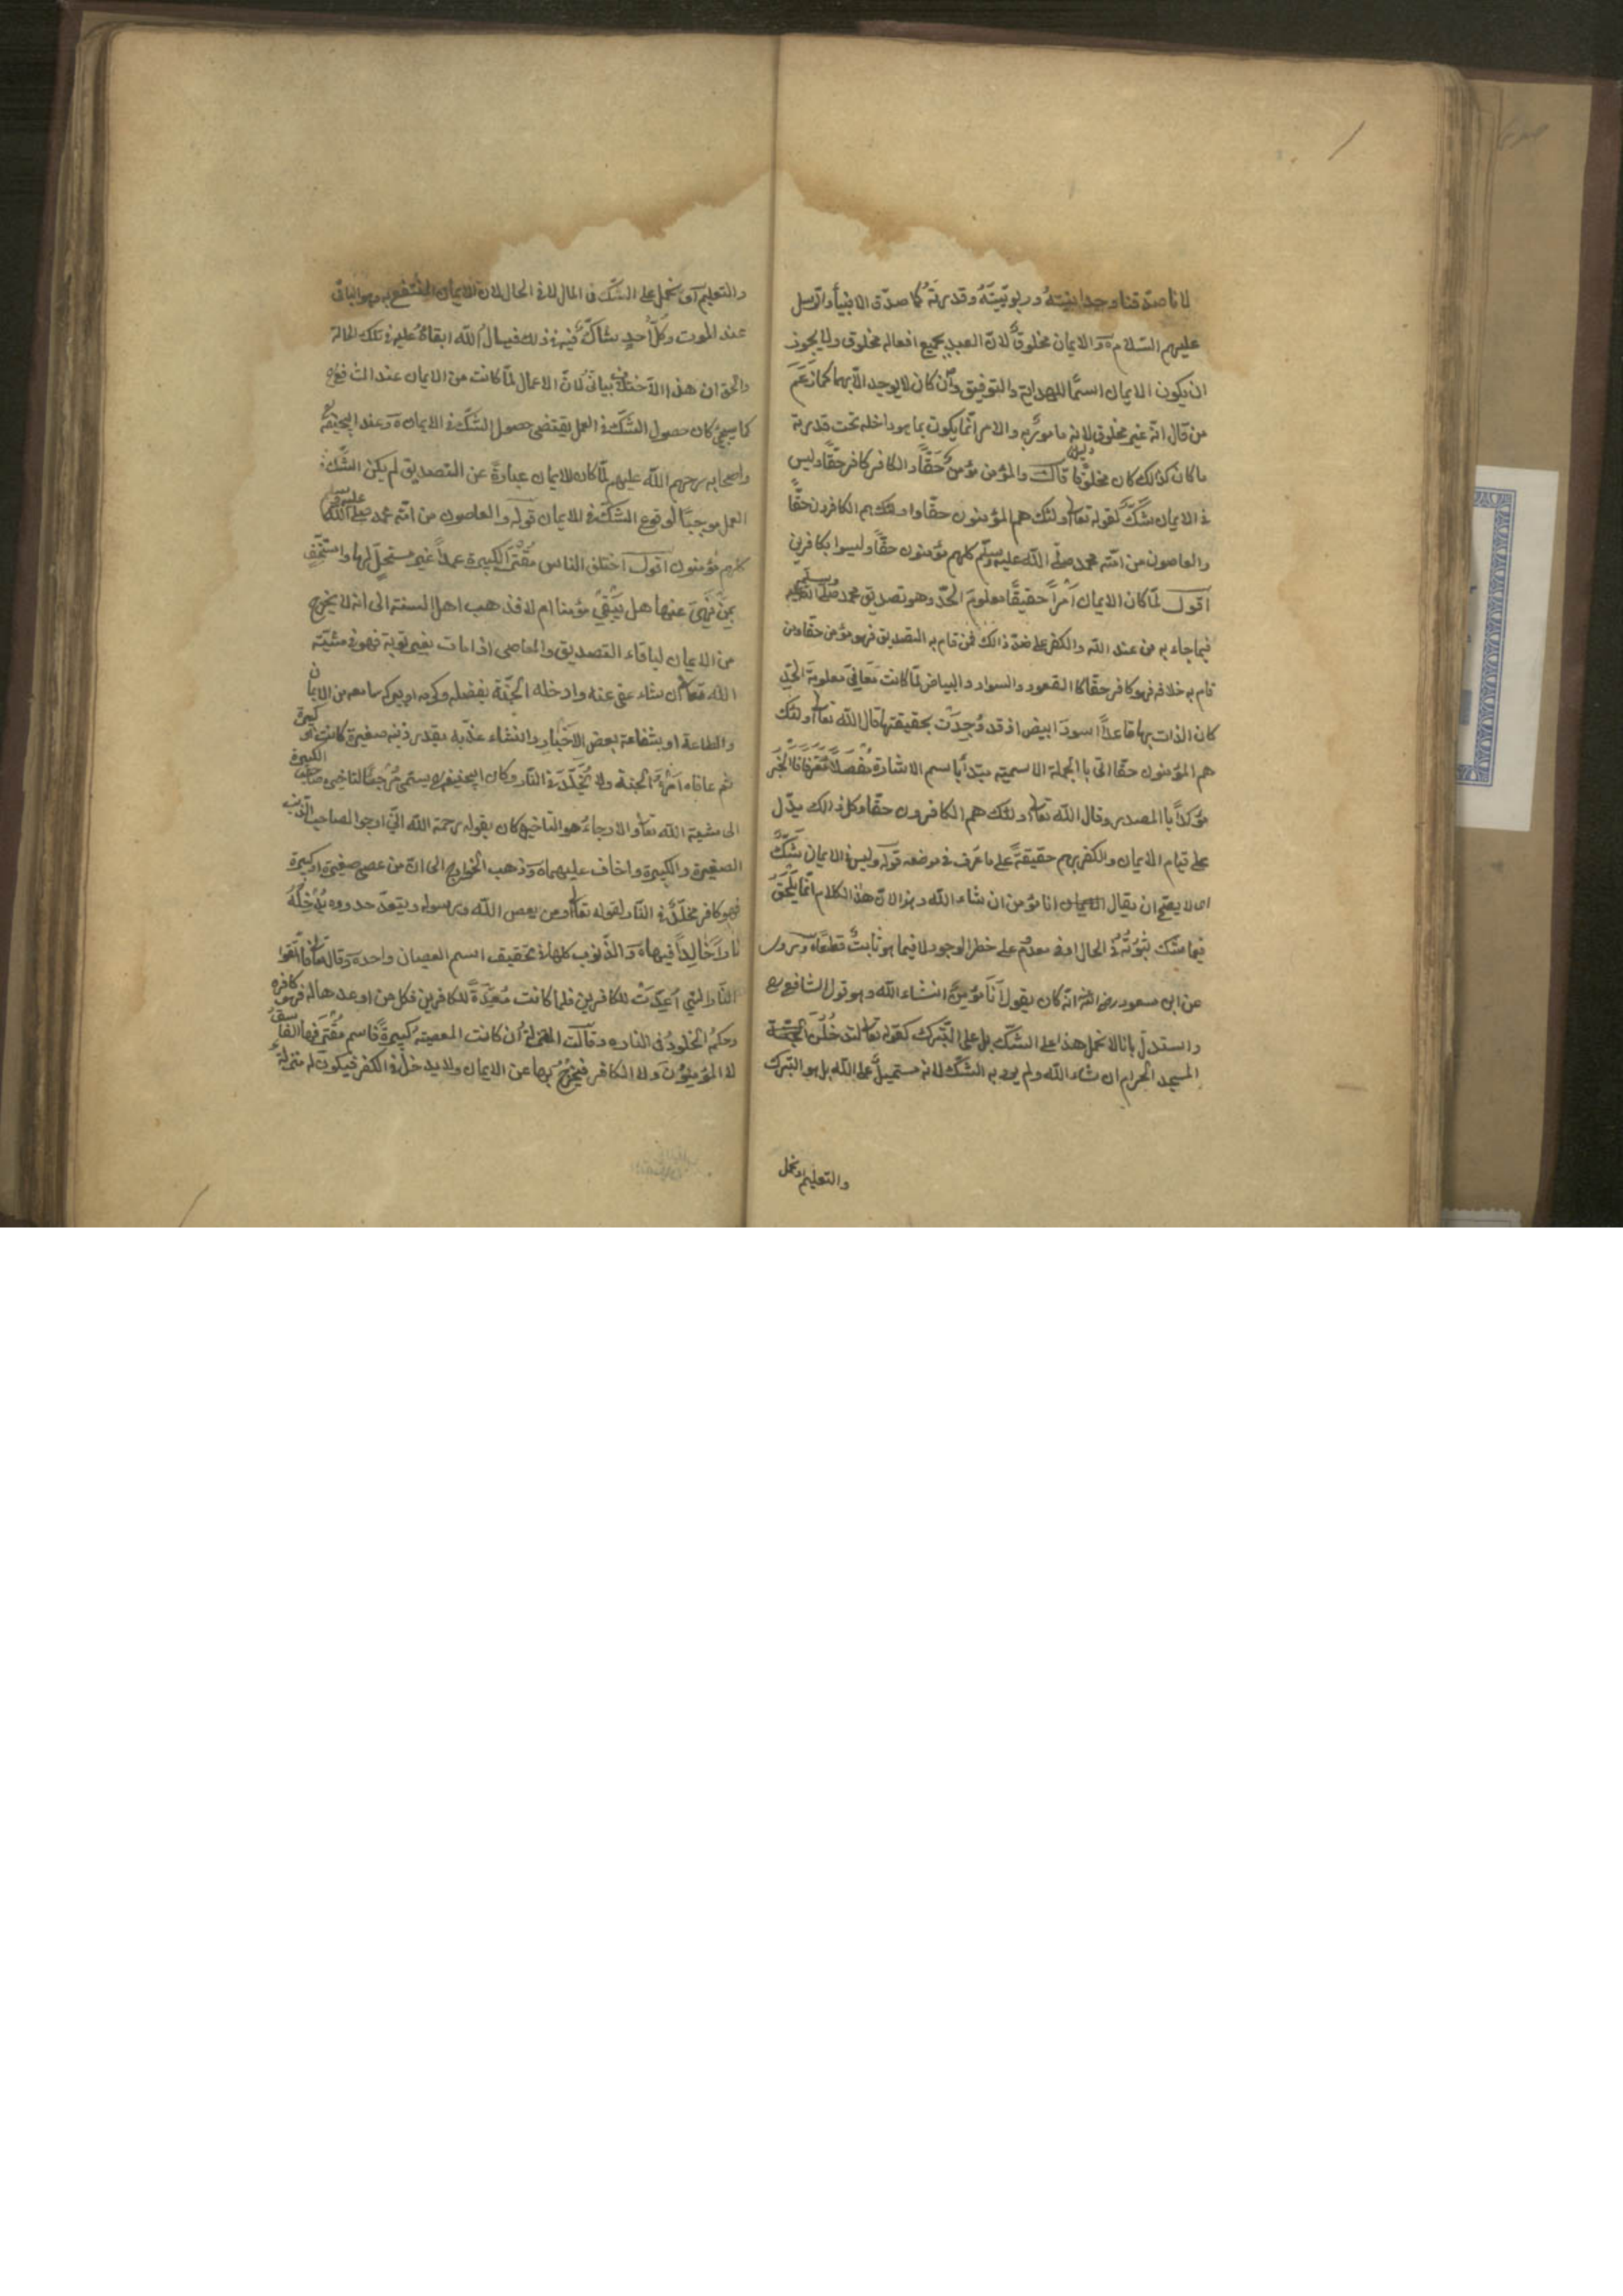 لانا صدقنا وحدانيته وربوبيته وقدرته كما صدق الانبياء والرسل
عليهم السلام والايمان مخلوق لان العبد بجميع افعاله مخلوق ولا يجوز
ان يكون الايمان اسما للهداية والتوفيق وان كان لا يوجد الا بهما كما زعم
من قال انه غير مخلوق لانه مامور به والامر انما يكون بما هو داخل تحت قدرته
ما كان كذلك كان مخلوقا قال والمؤمن مؤمن حقا والكافر كافر حقا وليس
في الايمان شك لقوله تعا اولئك هم المؤمنون حقا واولئك هم الكافرون حقا
والعاصون من امته محمد صلى الله عليه وسلم كلهم مؤمنون حقا وليسوا بكافرين
اقول لما كان الايمان امرا حقيقا معلوم الحد وهو تصديق محمد صلى الله عليه وسلم
فيما جاء به من عند الله والكفر على ضد ذالك فمن قام به التصديق فهو مؤمن حقا ومن
قام به خلافه فهو كافر حقا كالقعود والسواد والبياض لما كانت معاني معلومة الحد
كان الذات بها قاعدا اسود ابيض اذ قد وجدت بحقيقتها قال الله تعا اولئك
هم المؤمنون حقا اتى با الجملة الاسمية مبتدأ باسم الاشارة مفصلا معرفا الخبر
مؤكدا با المصدر وقال الله تعا اولئك هم الكافرون حقا وكل ذالك يدل
على قيام الايمان والكفر بهم حقيقة على ما عرف في موضعه قوله وليس في الايمان شك
اي لا يصح ان يقال انا مؤمن ان شاء الله وهذا لان هذا الكلام انما يلحق
فيما شك ثبوته في الحال او في معدوم على خطر الوجود لا فيما هو ثابت قطعا وروي
عن ابن مسعود رضي الله انه كان يقول انا مؤمن انشاء الله وهو قول الشافعي رح
واستدل بانا لا نحمل هذا على الشك بل على التبرك كقوله تعا لتدخلن
المسجد الحرام ان شاء الله ولم يرد به الشك لانه مستحيل على الله بل هو التبرك
والتعليم او نحمل
والتعليم او نحمل على الشك في المال لا في الحال لان الايمان المنتفع به هو الباقي
عند الموت وكل احد شاك في ذلك فيسال الله ابقاه عليه في تلك الحالة
والحق ان هذا الاختلاف لان الاعمال لما كانت من الايمان عند الشافعي رح
كما سيجيء كان حصول الشك في العمل يقتضي حصول الشك في الايمان وعند ابيحنيفة
واصحابه رحمهم الله عليهم لما كان الايمان عبارة عن التصديق لم يكن الشك في
العمل موجبا لوقوع الشك في الايمان قوله والعاصون من امته محمد صلى الله عليه وسلم
كلهم مؤمنون اقول اختلف الناس الكبيرة عمدا غير مستحل لها ولا مستخف
بمن نهى عنها هل يبقى مؤمنا ام لا فذهب اهل السنة الى انه لا يخرج
من الايمان لبقاء التصديق والعاصي اذا مات بغير توبة فهو في مشية
الله تعا ان شاء عفى عنه وادخله الجنة بفضله وكرمه او ببركه ما معه من الايمان
والطاعة او بشفاعة بعض الاخيار وانشاء عذبه بقدر ذنبه صغيرة كانت او كبيرة
ثم عاقبة امره الجنة ولا يخلد في النار وكان ابيحنيفه رح يسمى مرجيا لتاخيره صاحب الكبيرة
الى مشية الله تعا والارجاء هو التاخير وكان يقول رحمة الله اني ارجوا لصاحب الذنب
الصغيرة والكبيرة واخاف عليهما وذهب الخوارج الى ان من عصى صغيرة او كبيرة
فهو كافر مخلد في النار لقوله تعا ومن يعص الله ورسوله ويتعد حدوده يدخله
نارا خالدا فيها والذنوب كلها في تحقيق اسم العصيان واحدة وقال تعا فاتقوا
النار التي اعدت للكافرين فلما كانت معدة للكافرين فكل من اوعد هاله فهو كافر
وحكم الخلود في النار وقالت المعتزلة ان كانت المعصية كبيرة فاسم مقترفها الفاسق
لا المؤمنون ولا الكافر فيخرج بها عن الايمان ولا يدخل في الكفر فيكون له منزلة